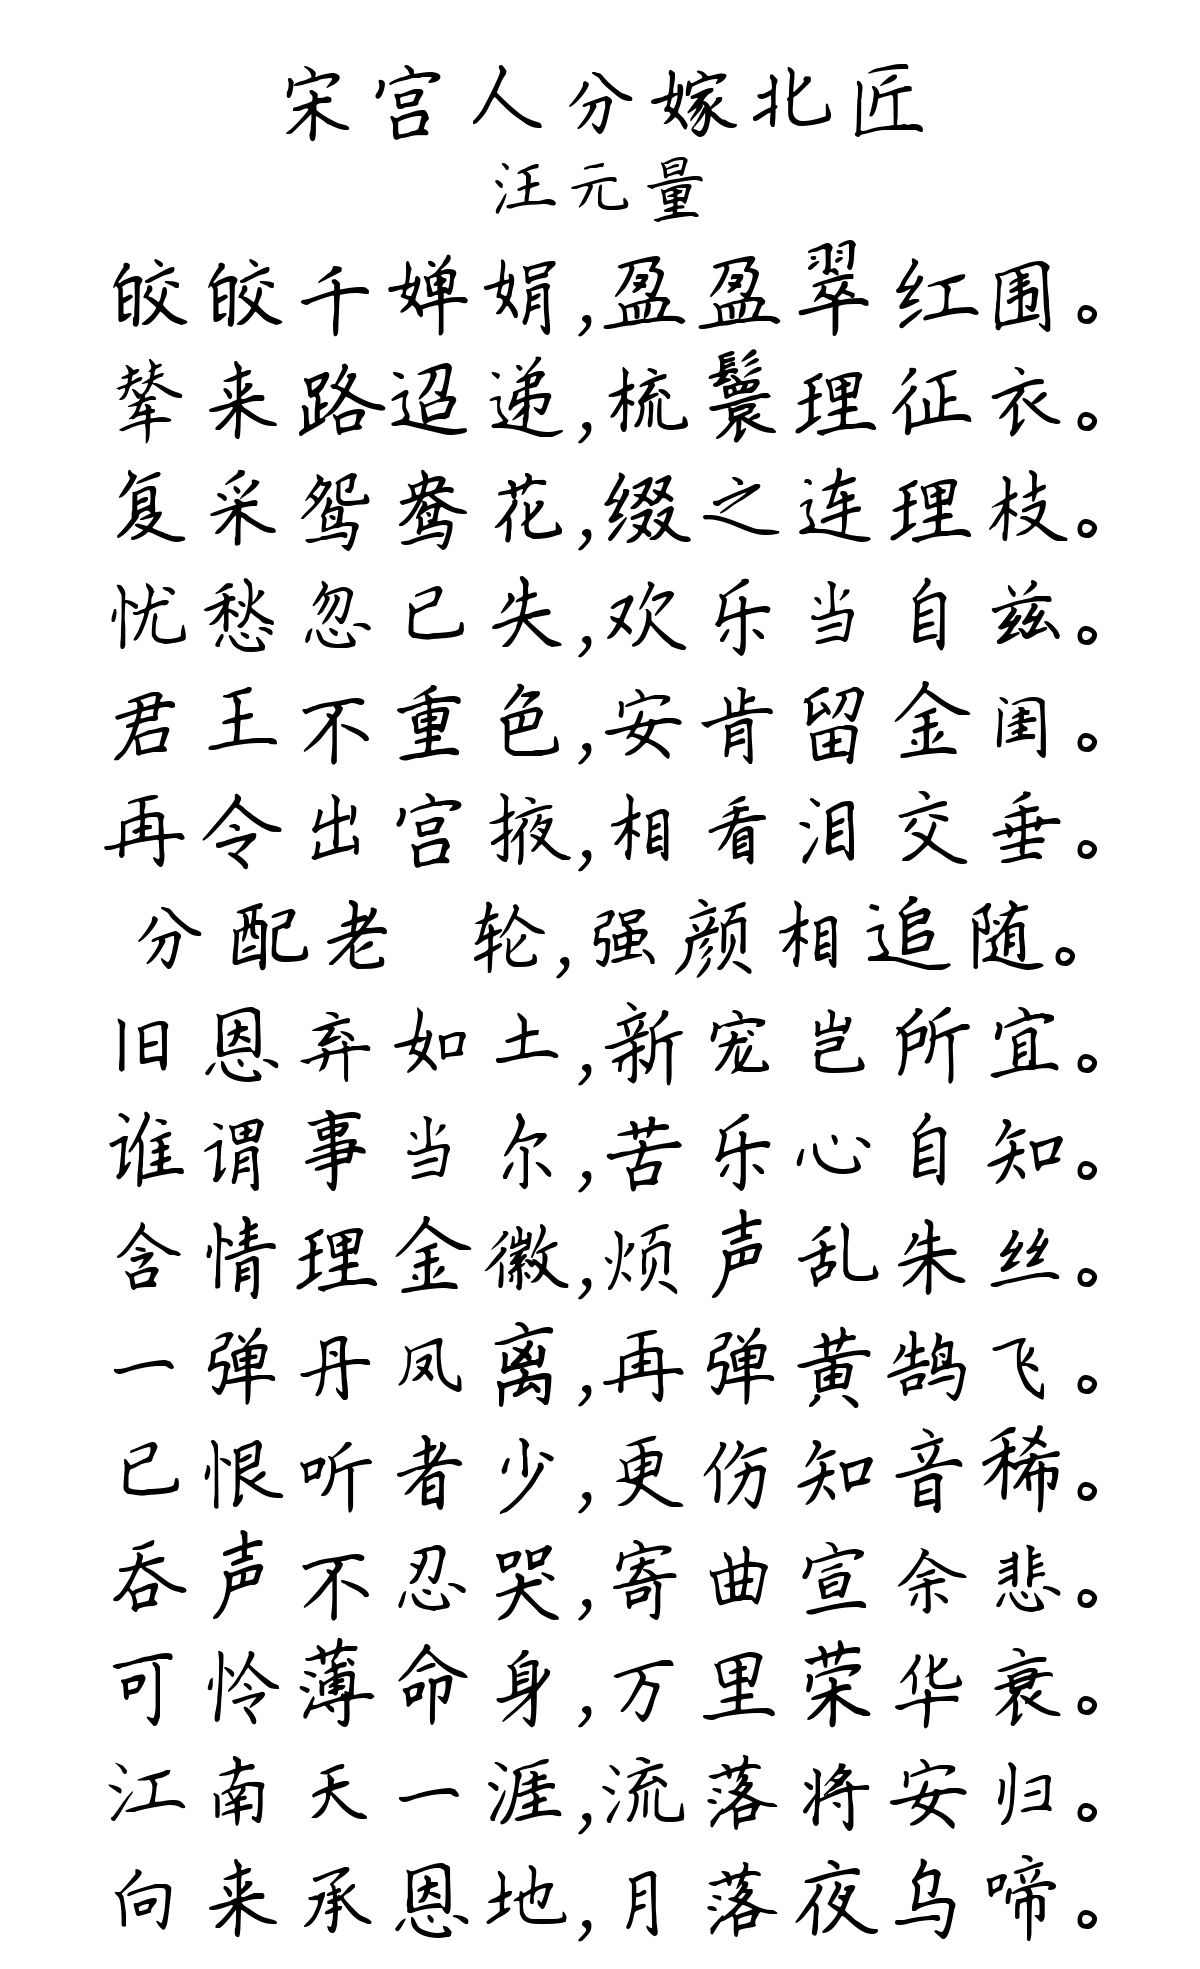 宋宫人分嫁北匠
汪元量
皎皎千婵娟,盈盈翠红围。
辇来路迢递,梳鬟理征衣。
复采鸳鸯花,缀之连理枝。
忧愁忽已失,欢乐当自兹。
君王不重色,安肯留金闺。
再令出宫掖,相看泪交垂。
分配老 轮,强颜相追随。
旧恩弃如土,新宠岂所宜。
谁谓事当尔,苦乐心自知。
含情理金徽,烦声乱朱丝。
一弹丹凤离,再弹黄鹄飞。
已恨听者少,更伤知音稀。
吞声不忍哭,寄曲宣余悲。
可怜薄命身,万里荣华衰。
江南天一涯,流落将安归。
向来承恩地,月落夜乌啼。